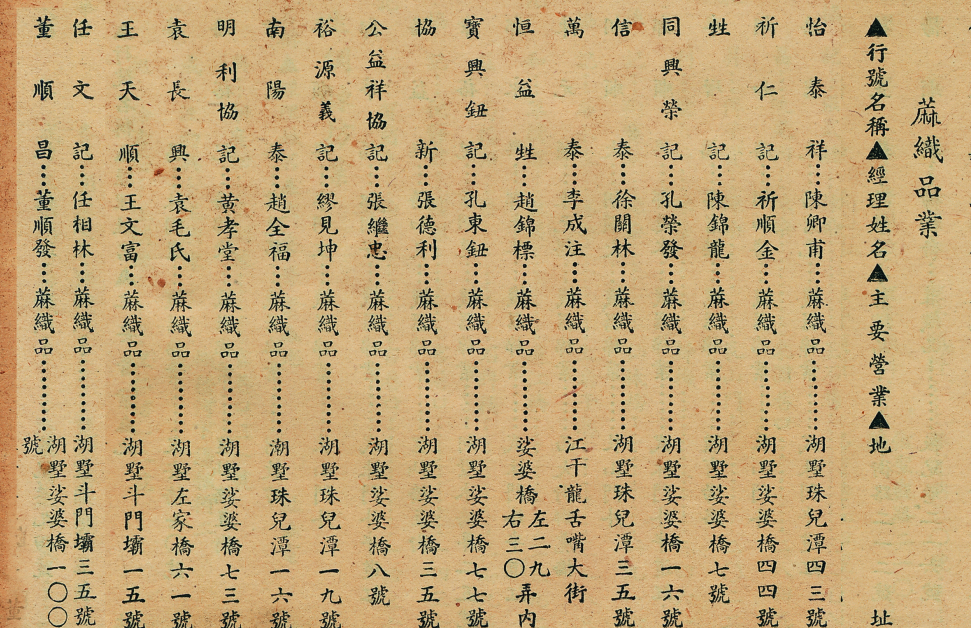 蔴織品業
▲行號名稱▲經理姓名▲主要營業▲地址
怡泰祥…陳卿甫…蔴織品…湖墅珠兒潭四三號
祈仁記…祈順金…蔴織品…湖墅娑婆橋四四號
甡記…陳錦龍…蔴織品…湖墅娑婆橋七號
同興榮記…孔榮發…蔴織品…湖墅娑婆橋一六號
信泰…徐關林…蔴織品…湖墅珠兒潭三五號
萬泰…李成注…蔴織品…江干龍舌嘴大街
恒益甡…趙錦標…蔴織品…娑婆橋左二九右三〇弄內
寶興鈕記…孔東鈕…蔴織品…湖墅娑婆橋七七號
協新…張德利…蔴織品…湖墅娑婆橋三五號
公益祥協記…張繼忠…蔴織品…湖墅娑婆橋八號
裕源義記…繆見坤…蔴織品…湖墅珠兒潭一九號
南陽泰…趙全福…蔴織品…潮墅珠兒潭一六號
明利協記…黃孝堂…蔴織品…湖墅娑婆橋七三號
袁長興…袁毛氏…蔴織品…湖墅左家橋六一號
王天順…王文富…蔴織品…湖墅斗門壩一五號
任文記…任相林…蔴織品…湖墅斗門壩三五號
董順昌…董順發…蔴織品…湖墅娑婆橋一〇〇號